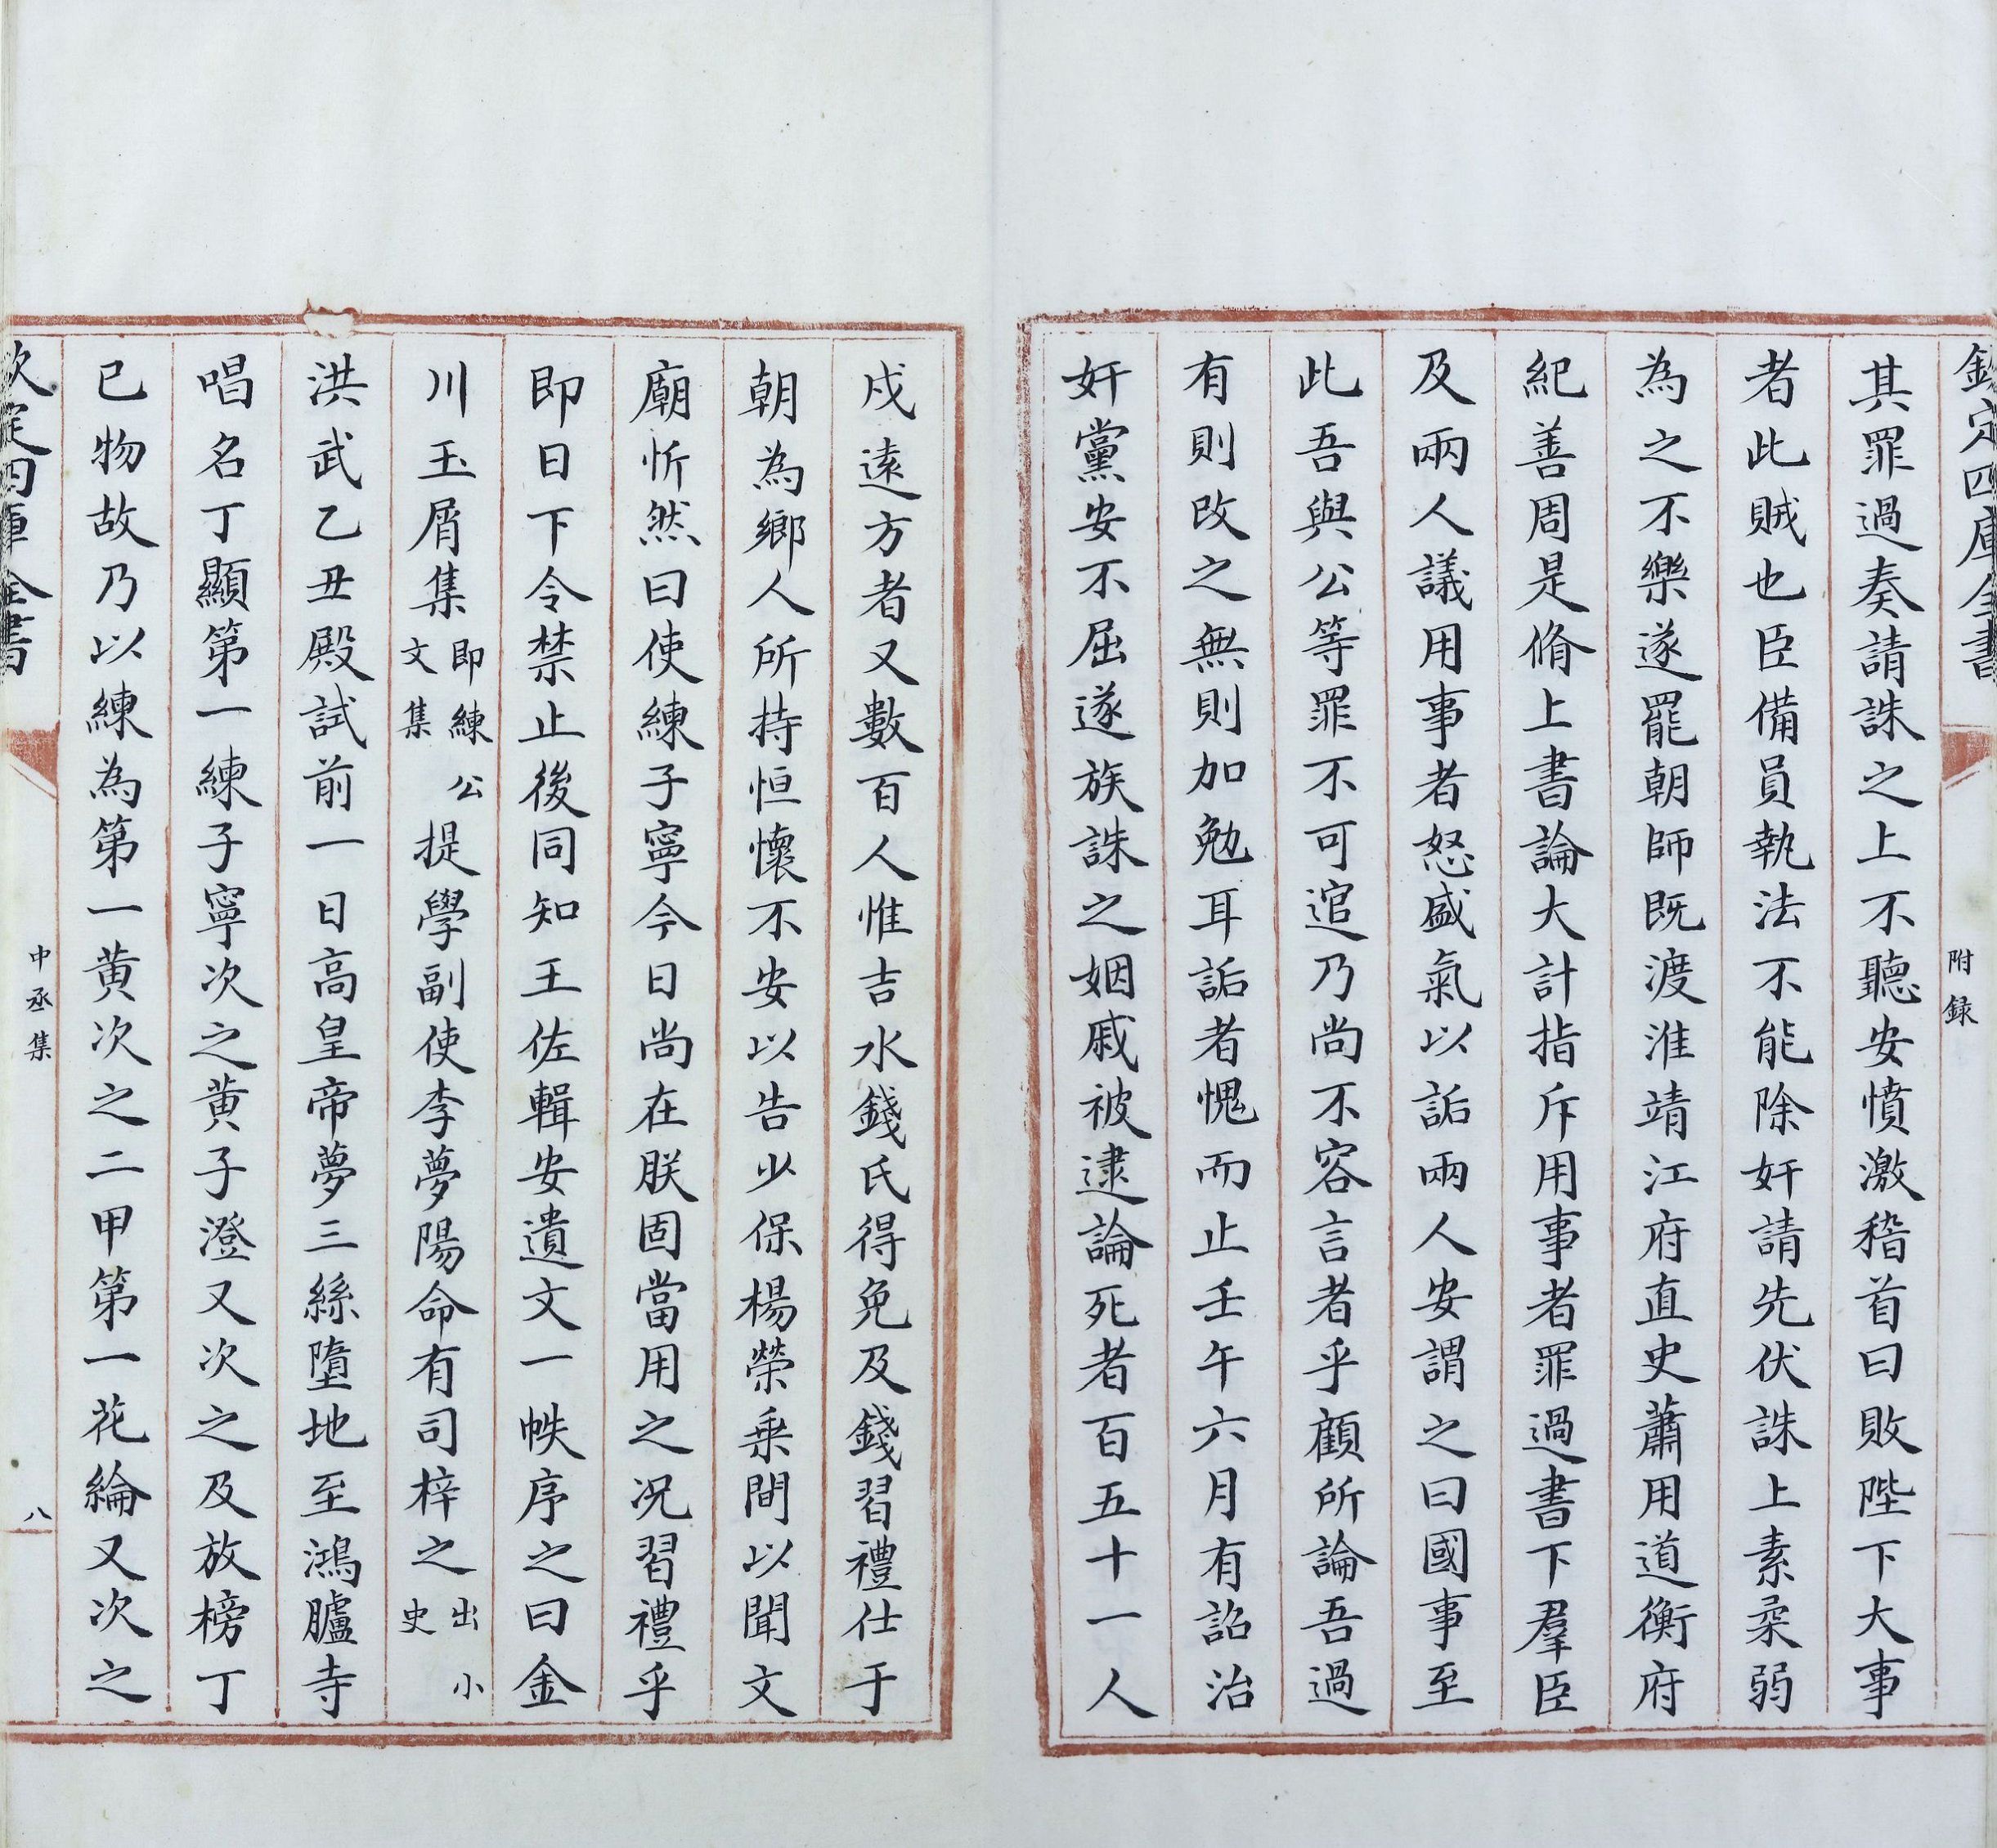 欽定四庫全書
附録
其罪過奏請誅之上不聽安憤激稽首曰敗陛下大事
者此賊也臣備員執法不能除奸請先伏誅上素柔弱
為之不樂遂罷朝師既渡淮靖江府直史蕭用道衡府
紀善周是脩上書論大計指斥用事者罪過書下羣臣
及兩人議用事者怒盛氣以詬兩人安謂之曰國事至
此吾與公等罪不可逭乃尚不容言者乎顧所論吾過
有則改之無則加勉耳詬者愧而止壬午六月有詔治
奸黨安不屈遂族誅之姻戚被逮論死者百五十一人
戍遠方者又數百人惟吉水錢氏得免及錢習禮仕于
朝為鄉人所持恒懷不安以告少保楊榮乗間以聞文
廟忻然曰使練子寧今日尚在朕固當用之况習禮乎
即日下令禁止後同知王佐輯安遺文一帙序之曰金
川玉屑集即練公文集提學副使李夢陽命有司梓之出小史
洪武乙丑殿試前一日高皇帝夢三絲墮地至鴻臚寺
唱名丁顯第一練子寧次之黄子澄又次之及放榜丁
已物故乃以練為第一黄次之二甲第一花綸又次之
欽定四庫全書
中丞集
八